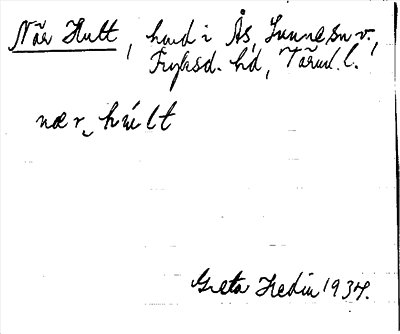 När Hult, hmd i Ås, Sunne sn v.,
Fryksd. hd, Värml. l.
næ r, hu̇ lt
Greta Hedin 1934.